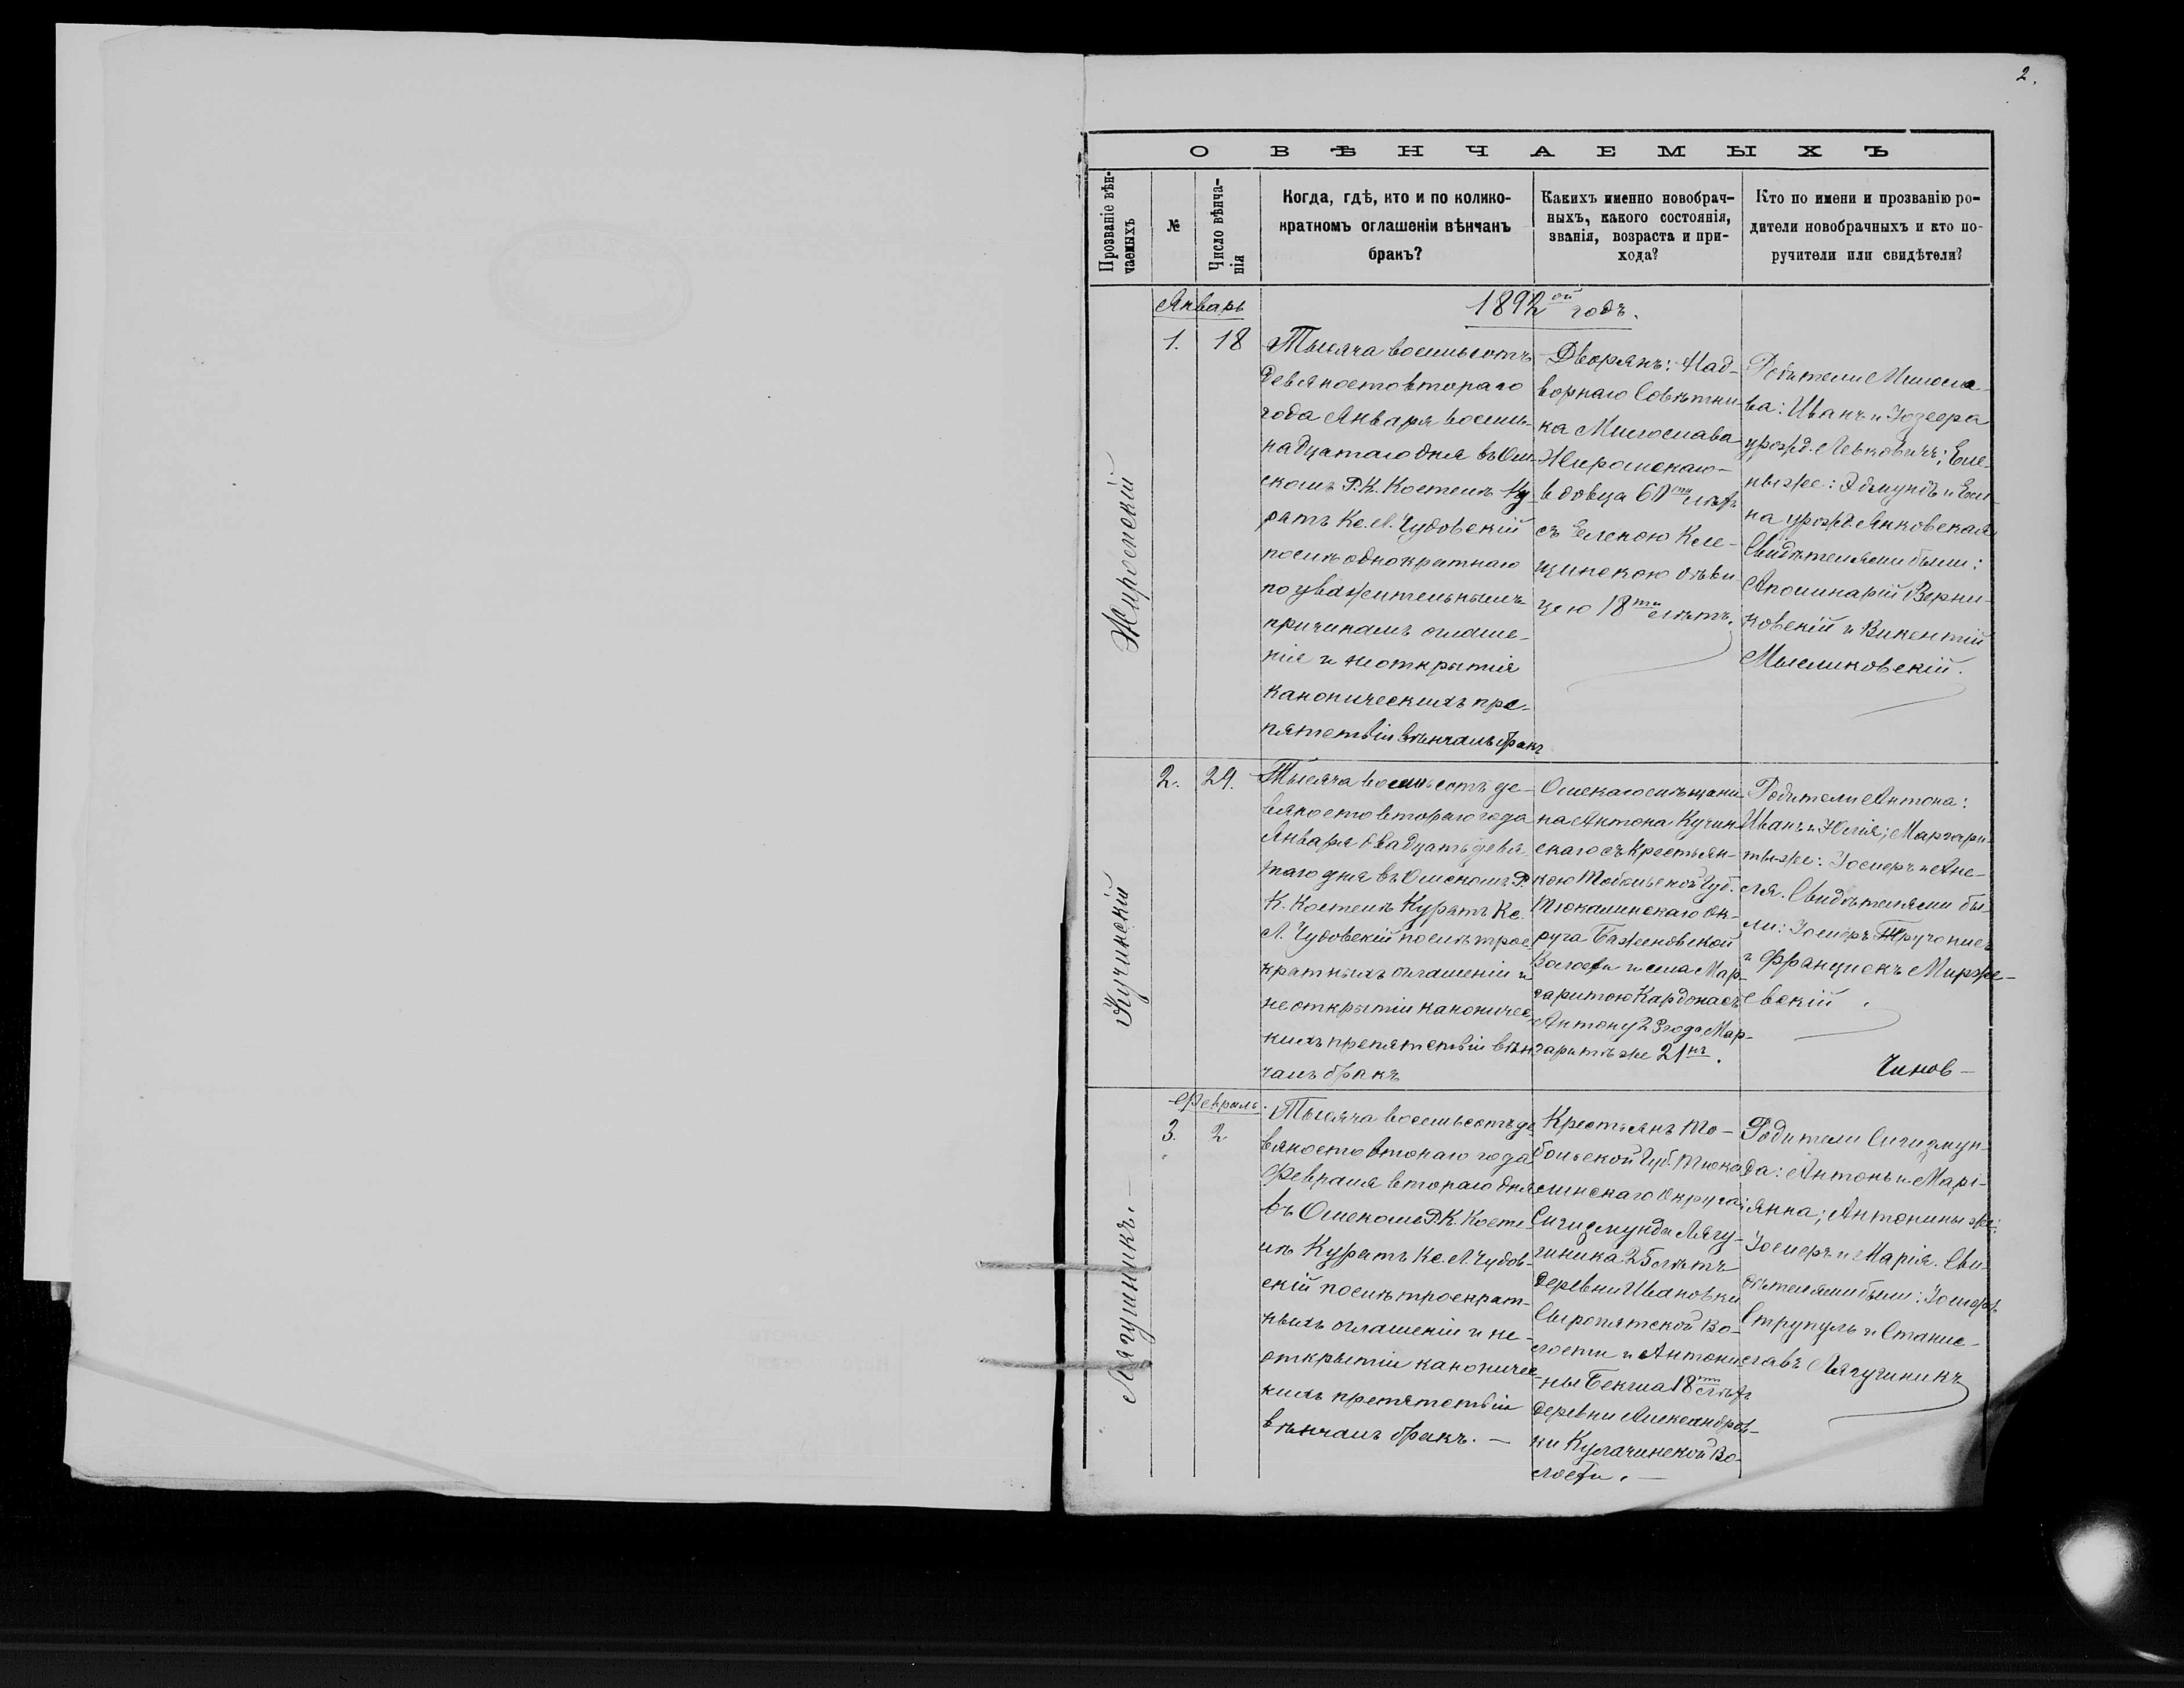 2.
О ВѢНЧАЕМЫХЪ
Прозваніе вѣн-
чаемыхъ
№
Число вѣнча-
нія
Когда, гдѣ, кто и по колико-
кратномъ оглашеніи вѣнчанъ
бракъ?
Какихъ именно новобрач-
ныхъ, какого состоянія,
званія, возраста и при-
хода?
Кто по имени и прозванію ро-
дители новобрачныхъ и кто по-
ручители или свидѣтели?
Январь
1892ой годъ.
Жиромскій
1.
18
Тысяча восемьсотъ
девяносто втораго
года Января восем-
надцатаго дня въ Ом-
скомъ Р. К. Костелѣ Ку-
ратъ Кс. Л. Чудовскій
послѣ однократнаго
по уважительнымъ
причинамъ оглаше-
нія и неоткрытія
каноническихъ пре-
пятствій вѣнчалъ бракъ
Дворянъ: Над-
ворнаго Совѣтни-
ка Милослава
Жиромскаго-
вдовца 60ти лѣтъ
съ Еленою Кле-
щинскою дѣви-
цею 18ти лѣтъ.
Родители Милосла-
ва: Иванъ и Іозефа
урожд. Левковичъ; Еле-
ны же: Эдмундъ и Еле-
на урожд. Янковская.
Свидѣтелями были:
Аполинарій Верни-
ковскій и Викентій
Мысликовскій.
Кучинскій
2.
29.
Тысяча восемьсотъ де-
вяносто втораго года
Января двадцать девя-
таго дня въ Омскомъ Р.
К. Костелѣ Куратъ Кс.
Л. Чудовскій послѣ трое-
кратныхъ оглашеній и
неоткрытіи каноничес-
кихъ препятствій вѣн-
чалъ бракъ
Омскаго мѣщани-
на Антона Кучин-
скаго съ Крестьян-
кою Тобольской Губ.
Тюкалинскаго Ок-
руга Баженовской
Волости и села Мар-
гаритою Кардонасъ
Антону 23 года Мар-
гаритѣ же 21нъ.
Родители Антона:
Иванъ и Юлія; Маргари-
ты же: Іосифъ и Ане-
ля. Свидѣтелями бы-
ли: Іосифъ
и Францискъ Мирже-
евскій.
Чинов-
Лягушникъ.-
Февраль.
3.
2
Тысяча восемьсотъ де-
вяносто втонаго года
Февраля втораго дня
въ Омскомъ Р.К. Косте-
лѣ Куратъ Кс. Л. Чудов-
скій послѣ троекрат-
ныхъ оглашеній и не-
открытіи каноничес-
кихъ препятствій
вѣнчалъ бракъ.-
Крестьянъ То-
больской Губ. Тюка-
линскаго Округа:
Сигизмунда Лягу-
шника 25 лѣтъ
деревни Ивановки
Сыропятской Во-
лости и Антони-
ны Бекша 18ти лѣтъ
деревни Александров-
ки Кулачинской Во-
лости.-
Родители Сигизмун-
да: Антонъ и Марі-
янна; Антонины же:
Іосифъ и Марія. Сви-
дѣтелями были: Іосифъ
Струпуль и Станис-
лавъ Лягушникъ